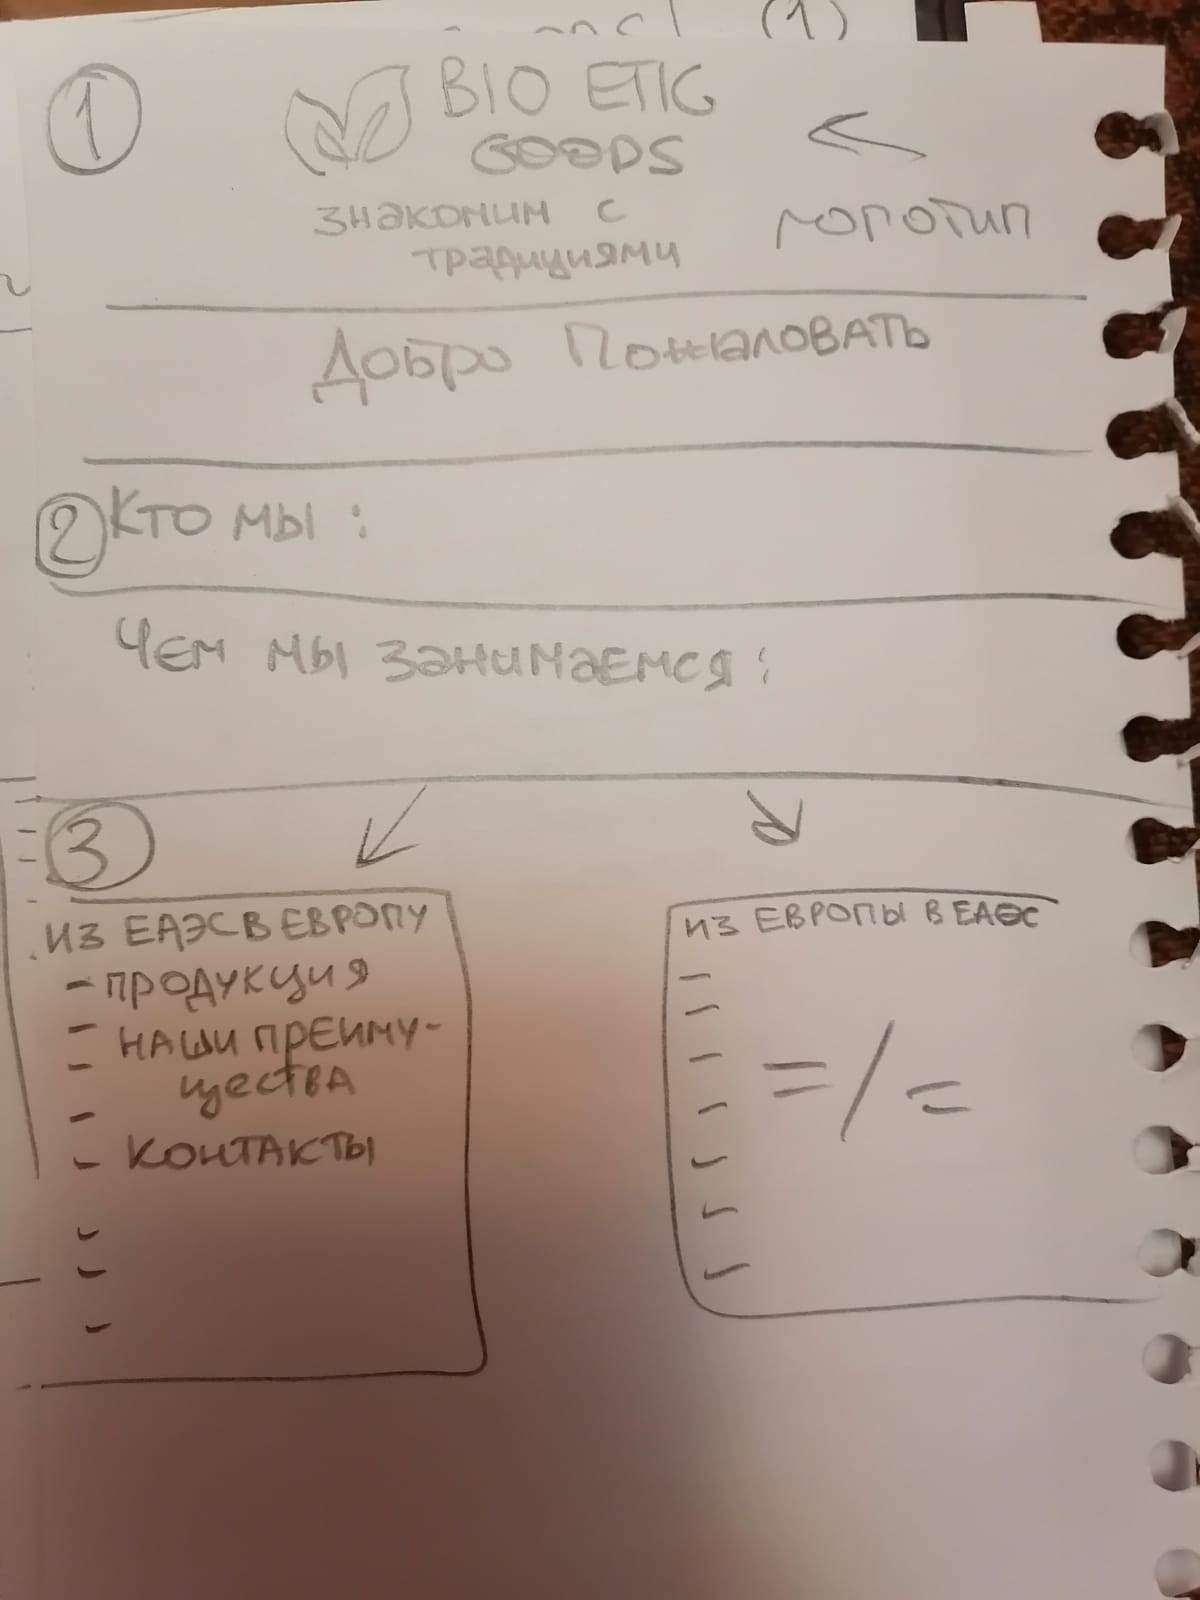 (1)
1
BIO ETIC
GOODS
знаконим с
традициями
логотип
Добро Пожаловать
2 Кто мы :
Чем мы занимаемся :
3
ИЗ ЕАЭС В ЕВРОПУ
- ПРОДУКЦИЯ
- НАШИ ПРЕИМУ-
ЩЕСТВА
- КОНТАКТЫ
ИЗ ЕВРОПЫ В ЕАЭС
= / =